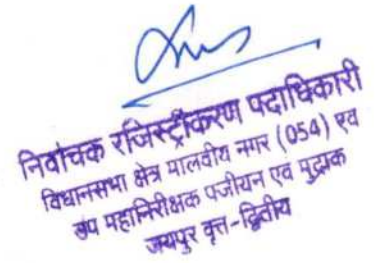 निर्वाचक रजिस्ट्रीकरण पदाधिकारी
विधानसभा क्षेत्र मालवीय नगर (054) एव
उप महानिरीक्षक पजीयन एव मुद्रांक
जयपुर वृत्त-द्वितीय